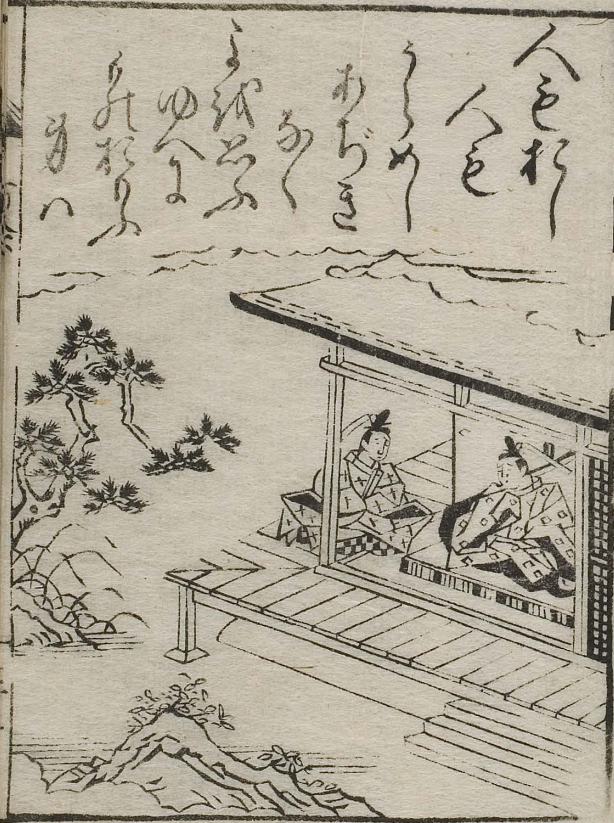 人もおし
人も
うらめし
あぢき
なく
よを思ふ
ゆへに
ものおもふ
身ハ